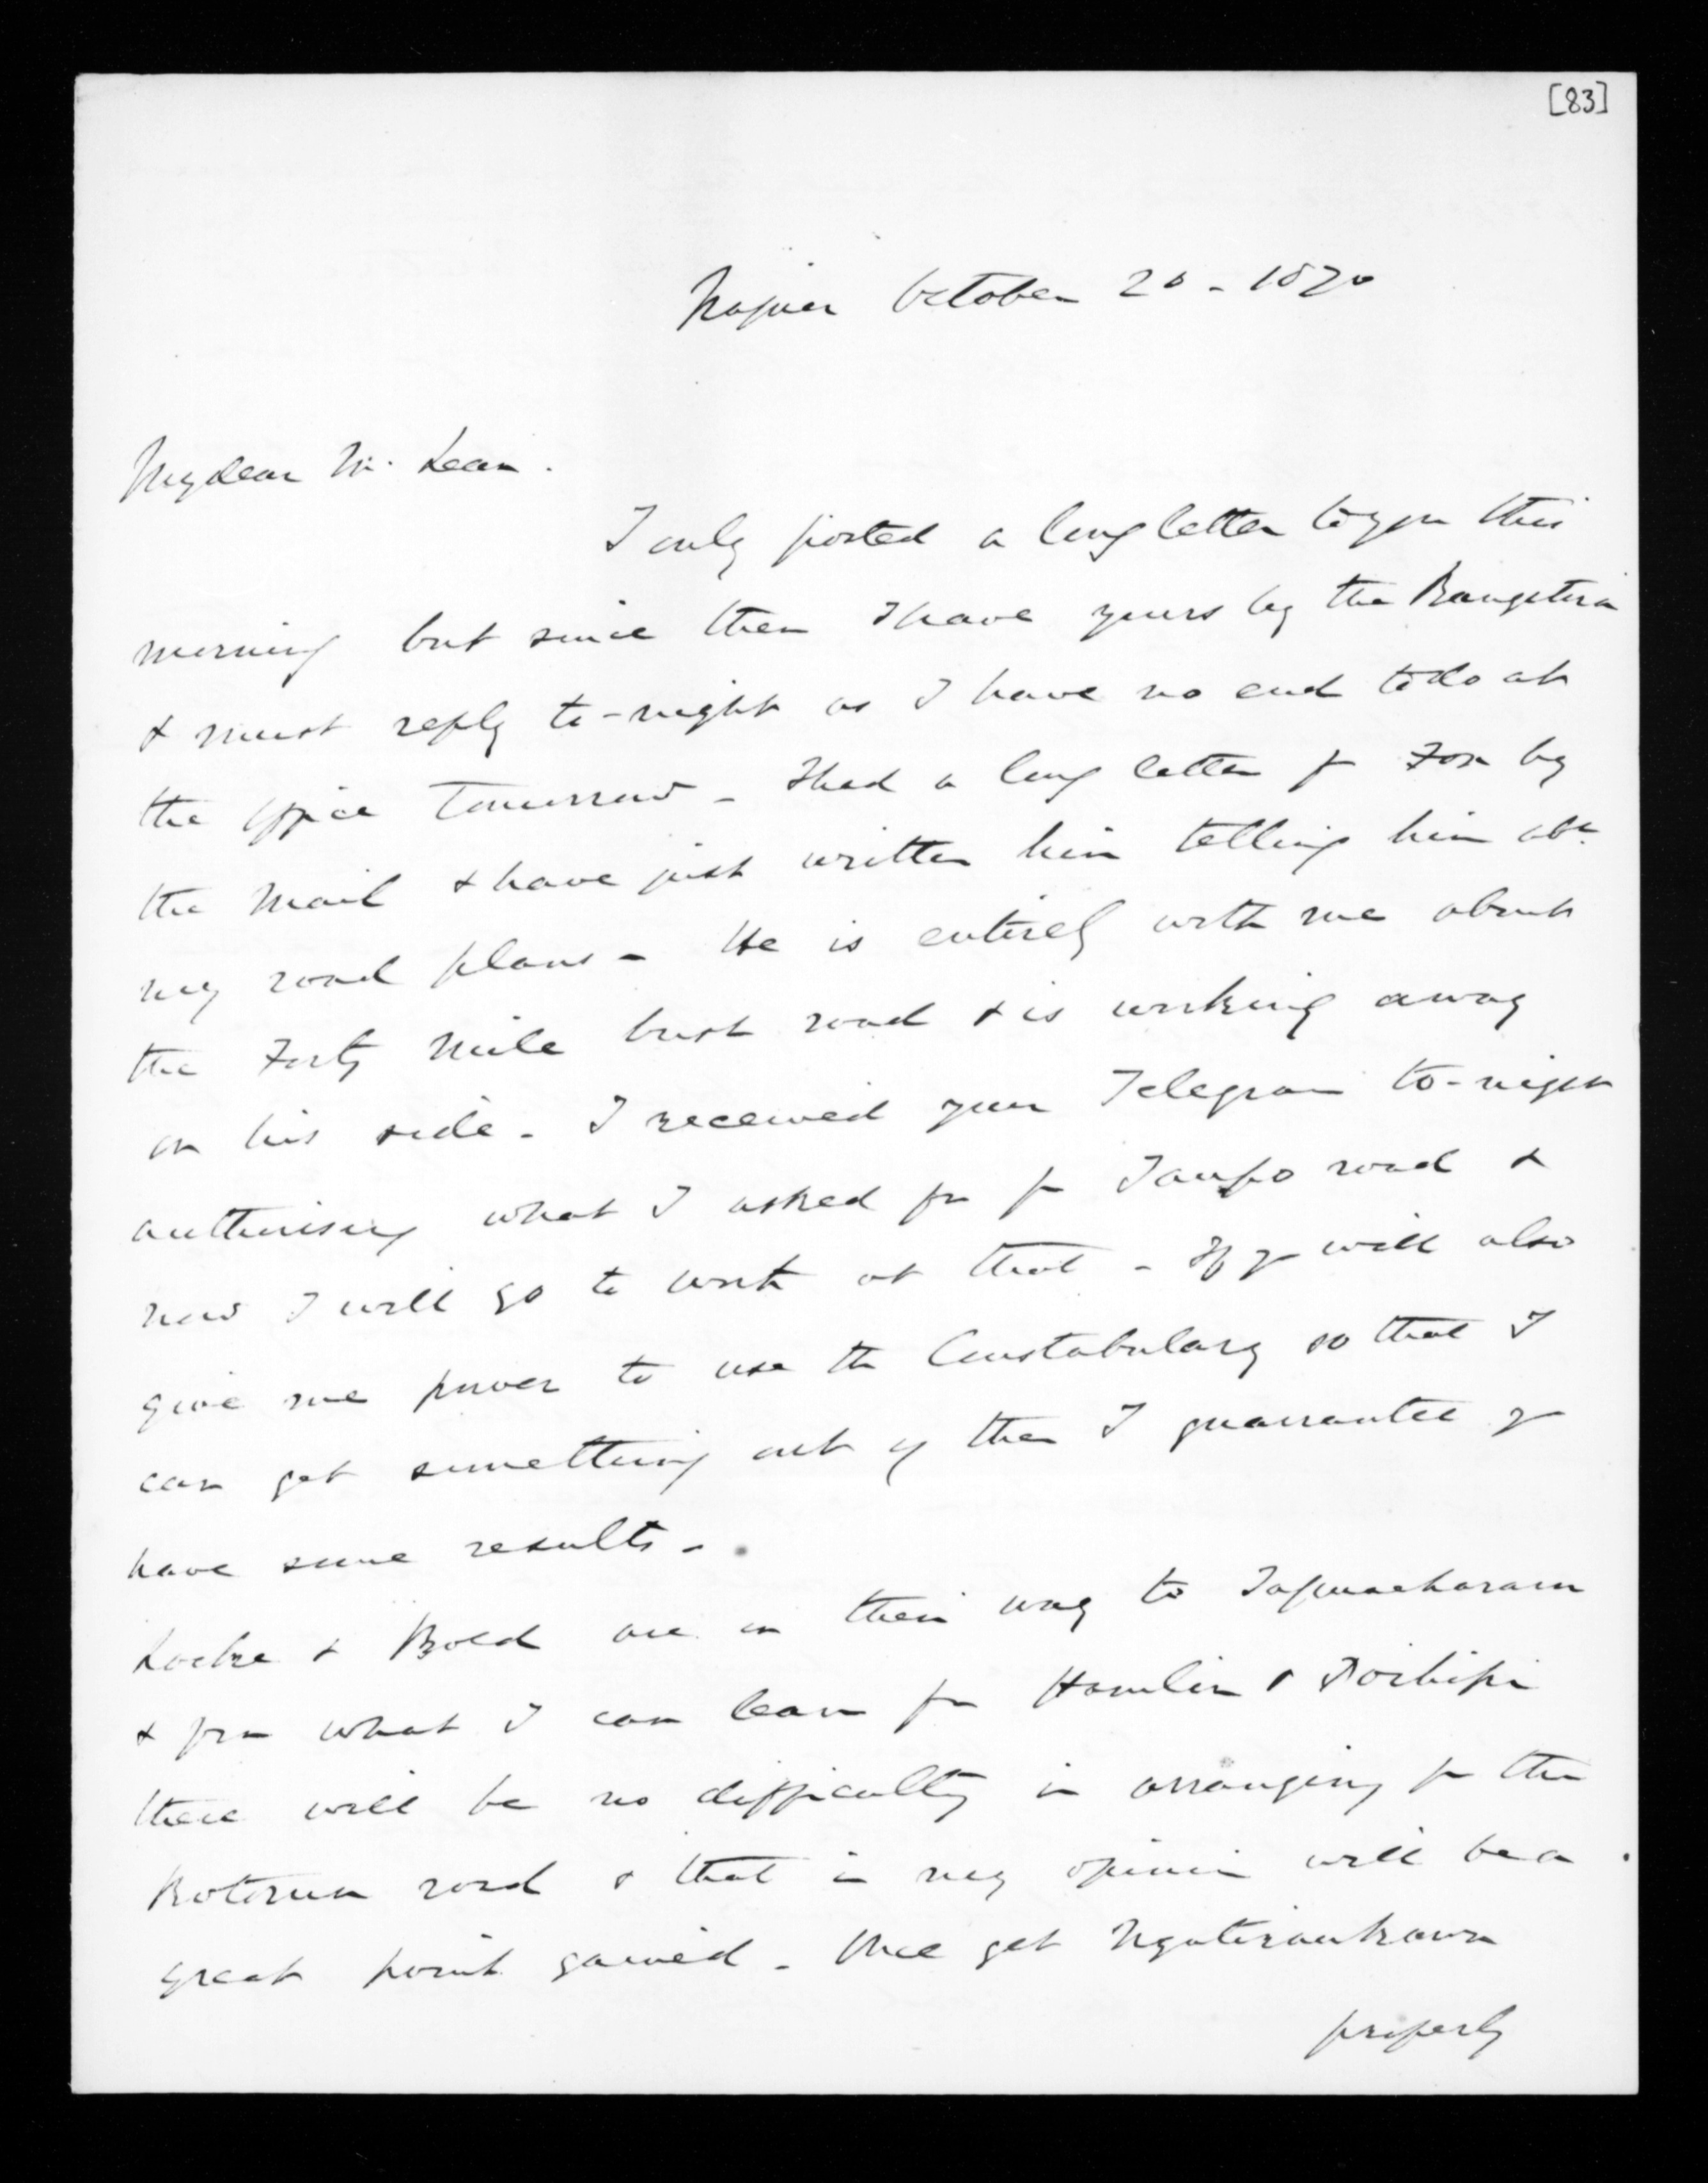 [83]
Napier October 20 - 1870
My dear McLean.
I only posted a long letter to you this
morning but since then I have yours by the Rangatira
& must reply to-night as I have no end to do at
the office tomorrow - I had a long letter fr Fox by
the Mail & have just written him telling him abt.
my road plans - He is entirely with me about
the Forty Mile bush road & is working away
on his side - I received your Telegram to-night
authorising what I asked for for Taupo road &
now I will go to work at that - If you will also
give me power to use the Constabulary so that I
can get something out of them I guarantee you
have some results -
Locke & Bold are on their way to Tapuaehararu
& from what I can learn fr Hamlin & Poihipi
there will be no difficulty in arranging for the
Rotorua road & that in my opinion will be a
great point gained - Once get Ngatiraukawa
properly